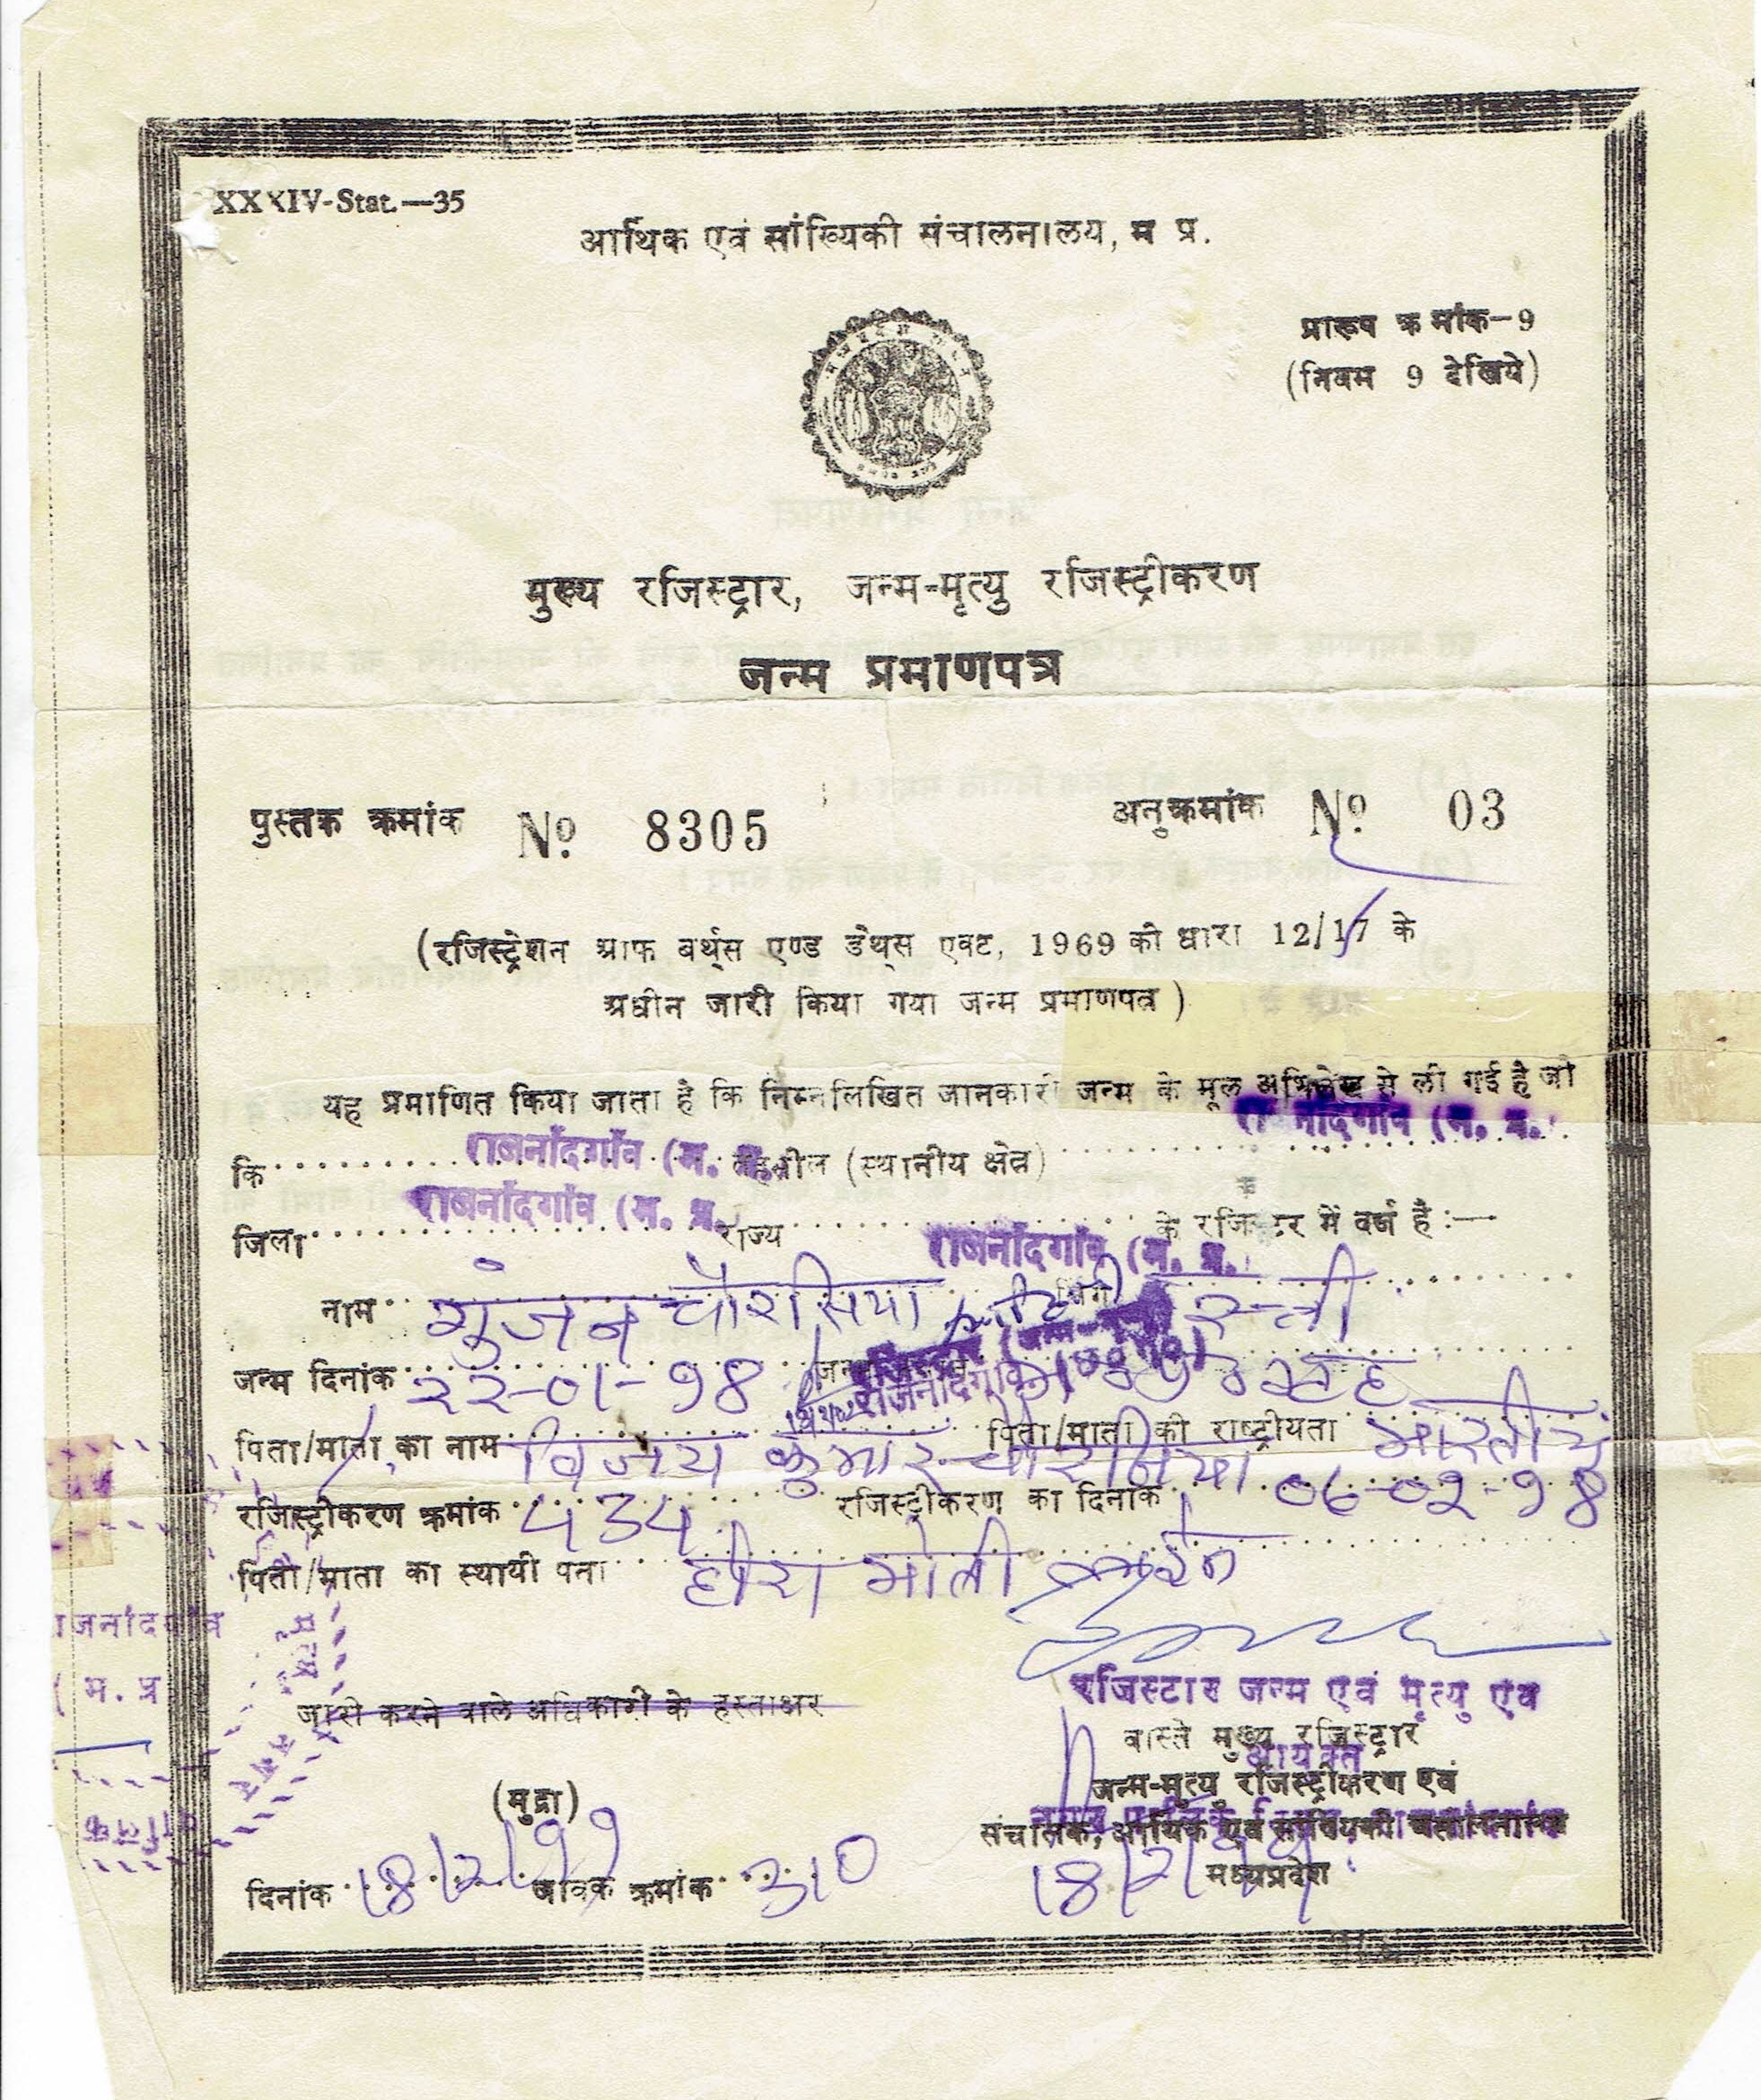 XXXIV-Stat.—35
आर्थिक एवं सांख्यिकी संचालनालय, म प्र.
प्रारूप क्रमांक-9
(नियम 9 देखिये)
मुख्य रजिस्ट्रार, जन्म-मृत्यु रजिस्ट्रीकरण
जन्म प्रमाणपत्र
पुस्तक क्रमांक Nº 8305 अनुक्रमांक Nº 03
(रजिस्ट्रेशन आफ बर्थ्स एण्ड डेथ्स एक्ट, 1969 की धारा 12/17 के
अधीन जारी किया गया जन्म प्रमाणपत्र)
यह प्रमाणित किया जाता है कि निम्नलिखित जानकारी जन्म के मूल अभिलेख से ली गई है जो
कि राजनांदगाँव (म. प्र. तहसील (स्थानीय क्षेत्र) राजनांदगाँव (म. प्र.
जिला राजनांदगाँव (म. प्र. राज्य राजनांदगाँव (म. प्र. के रजिस्टर में दर्ज है :—
नाम गुंजन चौरसिया लिंग स्त्री
जन्म दिनांक २२-०१-९8
पिता/माता का नाम विजय कुमार चौरसिया पिता/माता की राष्ट्रीयता भारतीय
रजिस्ट्रीकरण क्रमांक 434 रजिस्ट्रीकरण का दिनांक 06-0२-९8
पिता/माता का स्थायी पता हीरा मोती लाईन
राजनांदगांव
( म. प्र
रजिस्टार जन्म एवं मृत्यु एंव
जारी करने वाले अधिकारी के हस्ताक्षर
वास्ते मुख्य रजिस्ट्रार
आयुक्त
जन्म-मृत्यु रजिस्ट्रीकरण एवं
(मुद्रा)
संचालक, आर्थिक एवं सांख्यिकी संचालनालय
मध्यप्रदेश
दिनांक 18/2/99 जावक क्रमांक 310 18/2/99